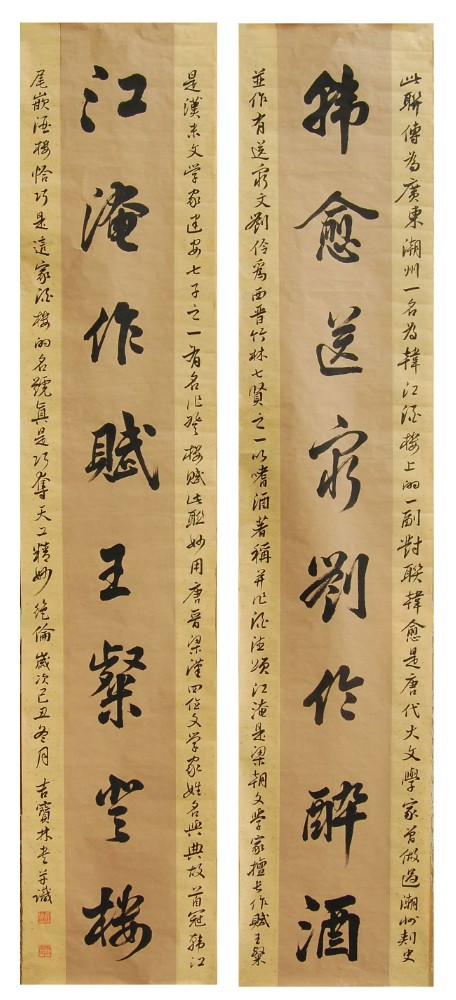 此聯傳為廣東潮州一名為韓江酒樓上的一副對聯韓愈是唐代大文學家曾做過潮州刺史
韓愈送窮劉伶醉酒
並作有送窮文劉伶爲西晋竹林七賢之一以嗜酒著稱并作酒德頌江淹是梁朝文學家擅長作賦王粲
是漢末文學家建安七子之一有名作登樓賦此聯妙用唐晋梁漢四位文學家姓名與典故首冠韓江
江淹作賦王粲登樓
尾嵌酒樓恰巧是這家酒樓的名號真是巧奪天工精妙絕倫歲次己丑冬月吉寶林書并識